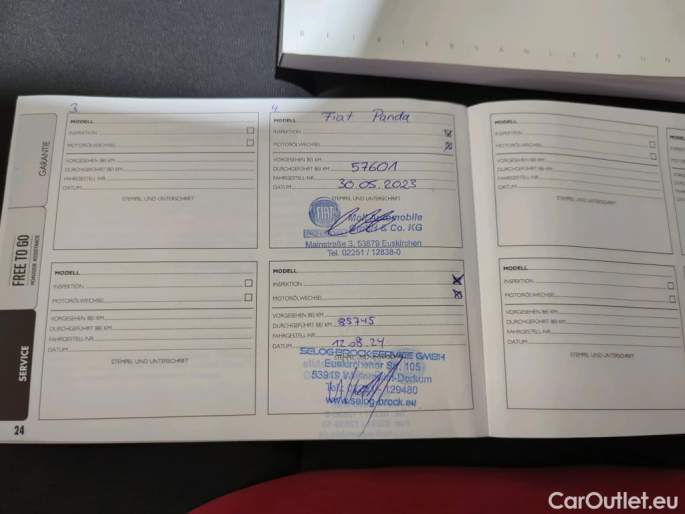 BETRIEBSANLEITUN
3
4
MODELL
INSPEKTION
MOTORÖLWECHSEL
VORGESEHEN BEI KM
DURCHGEFÜHRT BEI KM
FAHRGESTELL-NR.
DATUM
STEMPEL UND UNTERSCHRIFT
MODELL Fiat Panda
INSPEKTION
MOTORÖLWECHSEL
VORGESEHEN BEI KM
DURCHGEFÜHRT BEI KM 57601
FAHRGESTELL-NR.
DATUM 30.05.2023
STEMPEL UND UNTERSCHRIFT
FIAT
& Co. KG
Mainstraße 3, 53879 Euskirchen
Tel. 02251 / 12838-0
MODELL
INSPEKTION
MOTORÖLWECHSEL
VORGESEHEN BEI KM
DURCHGEFÜHRT BEI KM
FAHRGESTELL-NR.
DATUM
STEMPEL UND UNTERSCHRIFT
GARANTIE
FREE TO GO
SERVICE
MODELL
INSPEKTION
MOTORÖLWECHSEL
VORGESEHEN BEI KM
DURCHGEFÜHRT BEI KM
FAHRGESTELL-NR.
DATUM
STEMPEL UND UNTERSCHRIFT
MODELL
INSPEKTION
MOTORÖLWECHSEL
VORGESEHEN BEI KM
DURCHGEFÜHRT BEI KM 85745
FAHRGESTELL-NR.
DATUM 12.08.24
SELOG-BROCK SERVICE GMBH
Euskirchener Str. 105
53919
129480
www.selog-brock.eu
MODELL
INSPEKTION
MOTORÖLWECHSEL
VORGESEHEN BEI KM
DURCHGEFÜHRT BEI KM
FAHRGESTELL-NR.
DATUM
STEMPEL UND UNTERSCHRIFT
24
CarOutlet.eu